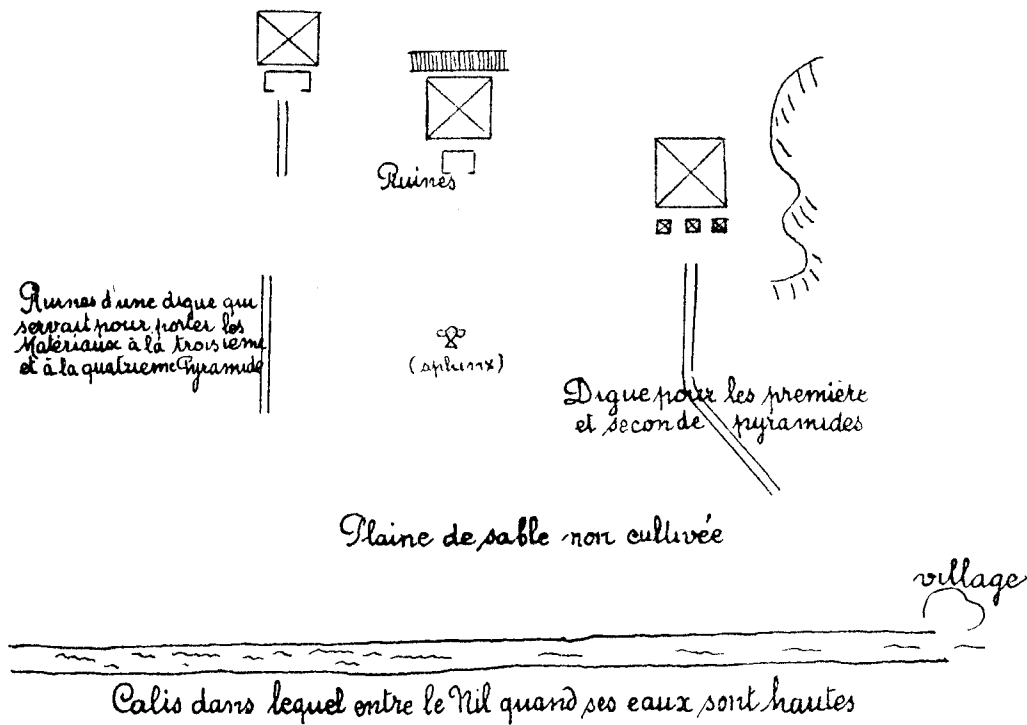 Ruines
Ruines d'une digue qui
servait pour porter les
Matériaux à la troisième
et à la quatrieme Pyramide
(sphinx)
Digue pour les première
et seconde pyramides
Plaine de sable non cultivée
village
Calis dans lequel entre le Nil quand ses eaux sont hautes